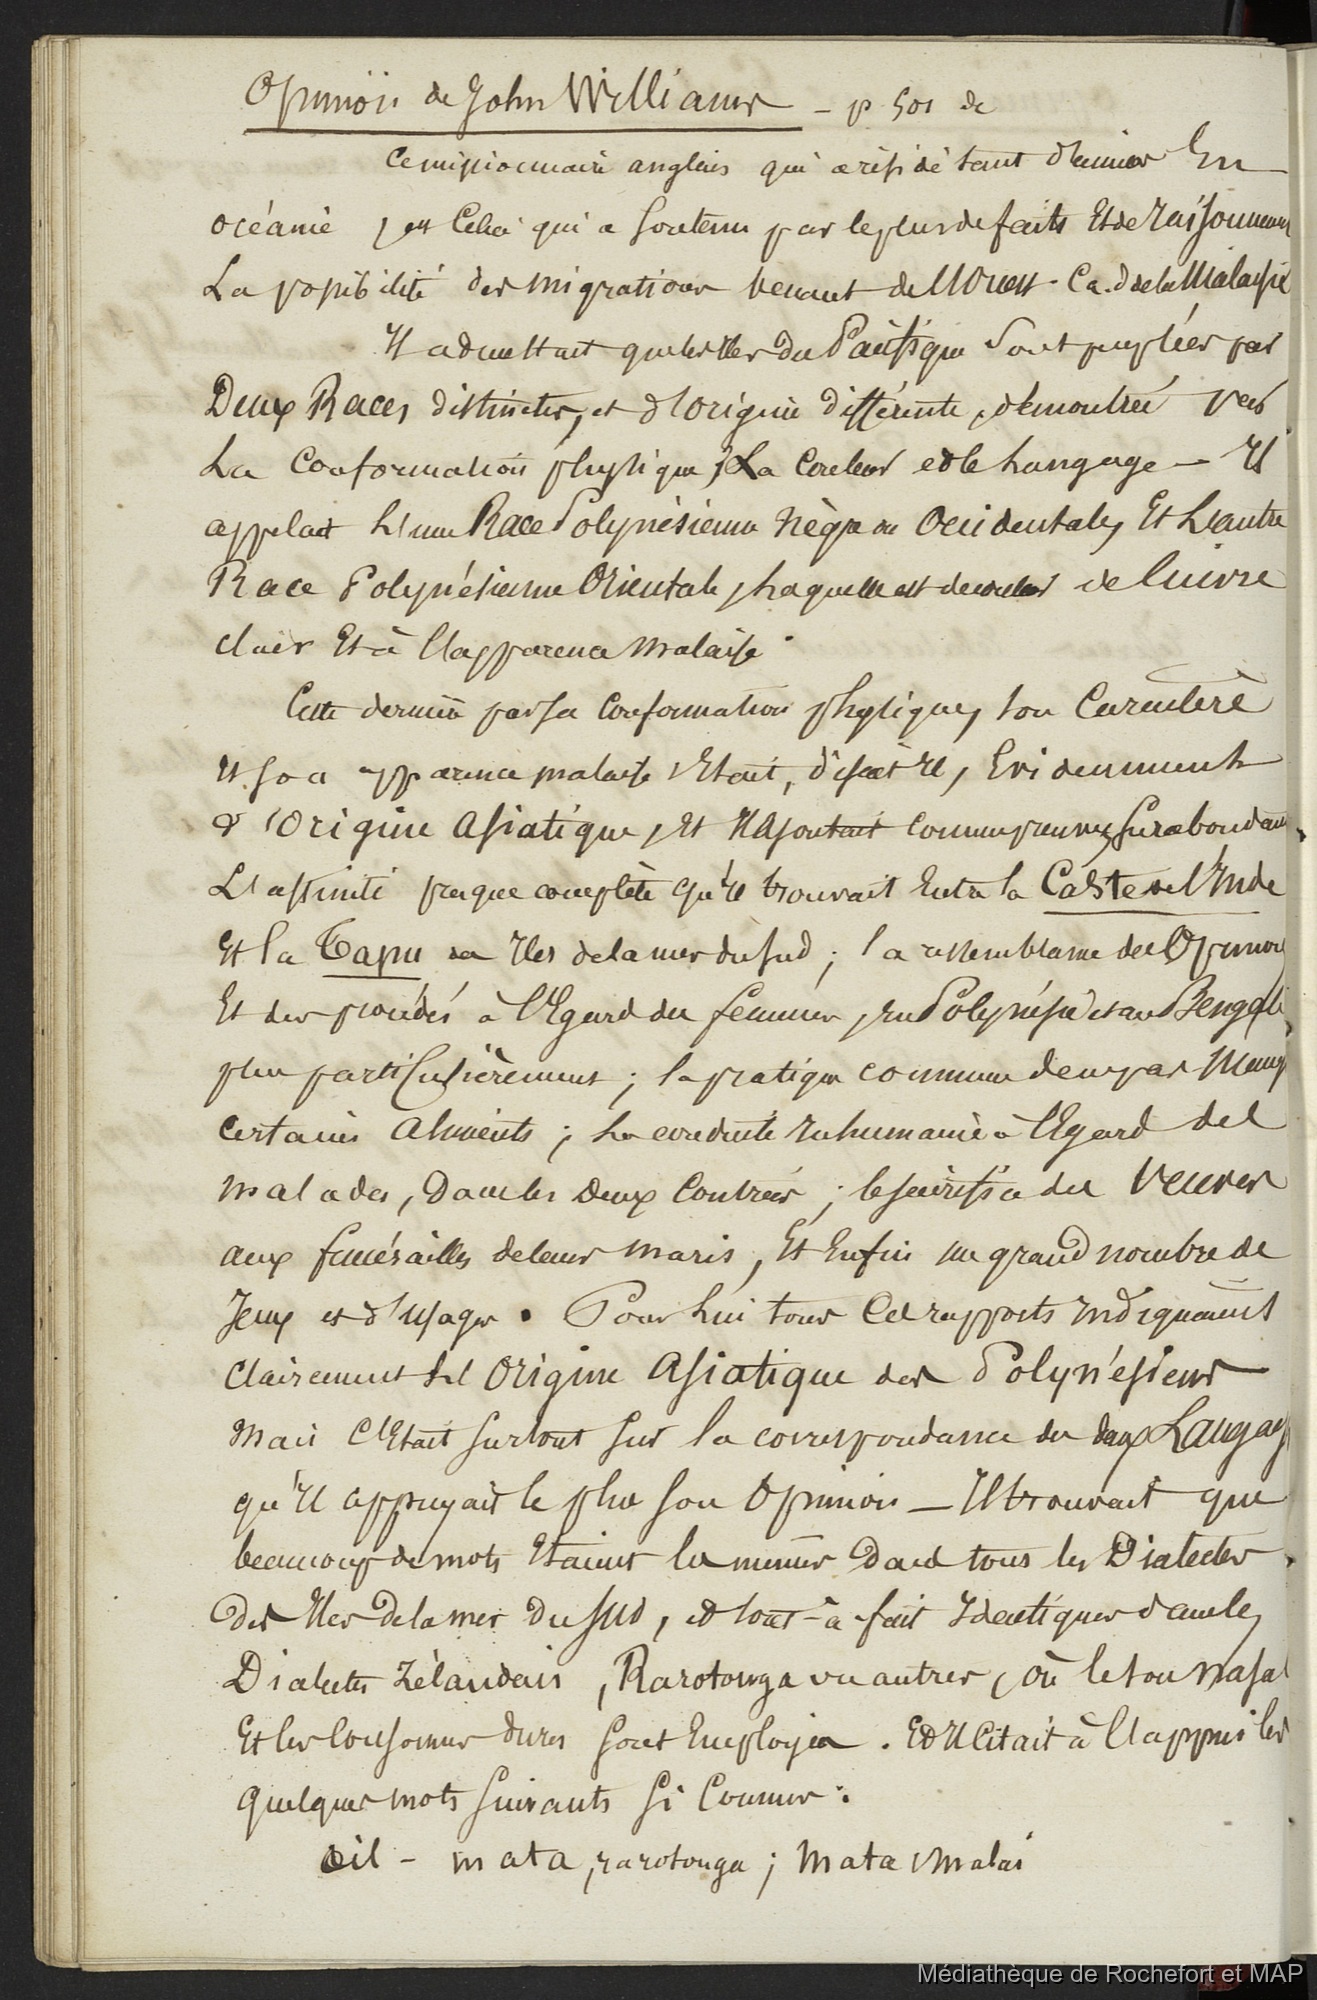 Opinion de John Williams – p 501 de
Ce missionnaire anglais qui a résidé tant d'années En
océanie, est Celui qui a soutenu par le plus de faits Et de raisonnemens
La possibilité des migrations venant de l'Ouest. C.a.d de la Malaysie
Il admettait que les Iles du Pacifique sont peuplées par
Deux Races distinctes, et d'origine différente, démontrée par
La Conformation physique, La Couleur et le Langage – Il
appelait L'une Race Polynésienne Nègre ou Occidentale, Et L'autre
Race Polynésienne Orientale, Laquelle est de couleur de Cuivre
clair Et à l'apparence malaise.
Cette dernière par sa Conformation physique, son Caractère
Et son apparence malaise Etait, disait-Il, Evidemment
d'Origine Asiatique, Et Il Ajoutait comme preuves surabondantes
L'affinité presque complète qu'Il trouvait Entre la Caste de l'Inde
Et la Tapu des Iles de la mer du Sud ; la ressemblance des Opinions
Et des procédés à l'Egard des femmes, En Polynésie et au Bengale
plus particulièrement ; la pratique commune de ne pas Manger
certains Aliments ; La conduite Inhumaine à l'Egard des
malades, Dans les Deux Contrées ; le sacrifice des Veuves
aux funérailles de leurs maris, Et Enfin un grand nombre de
Jeux et d'Usages. Pour Lui tous Ces rapports Indiquaient
Clairement L'Origine Asiatique des Polynésiens
Mais C'Etait surtout sur la correspondance des deux Langages
qu'Il appuyait le plus son Opinion – Il trouvait que
beaucoup de mots Etaient les mêmes Dans tous les Dialectes
des Iles de la mer du Sud, et tout-à-fait Identiques dans les
Dialectes Zélandais, Rarotonga ou autres, où le son nasal
Et les Consonnes dures sont Employés. Et Il Citait à l'appui les
quelques mots suivants si Connus :
œil – mata, rarotonga ; Mata, malai
Médiathèque de Rochefort et MAP